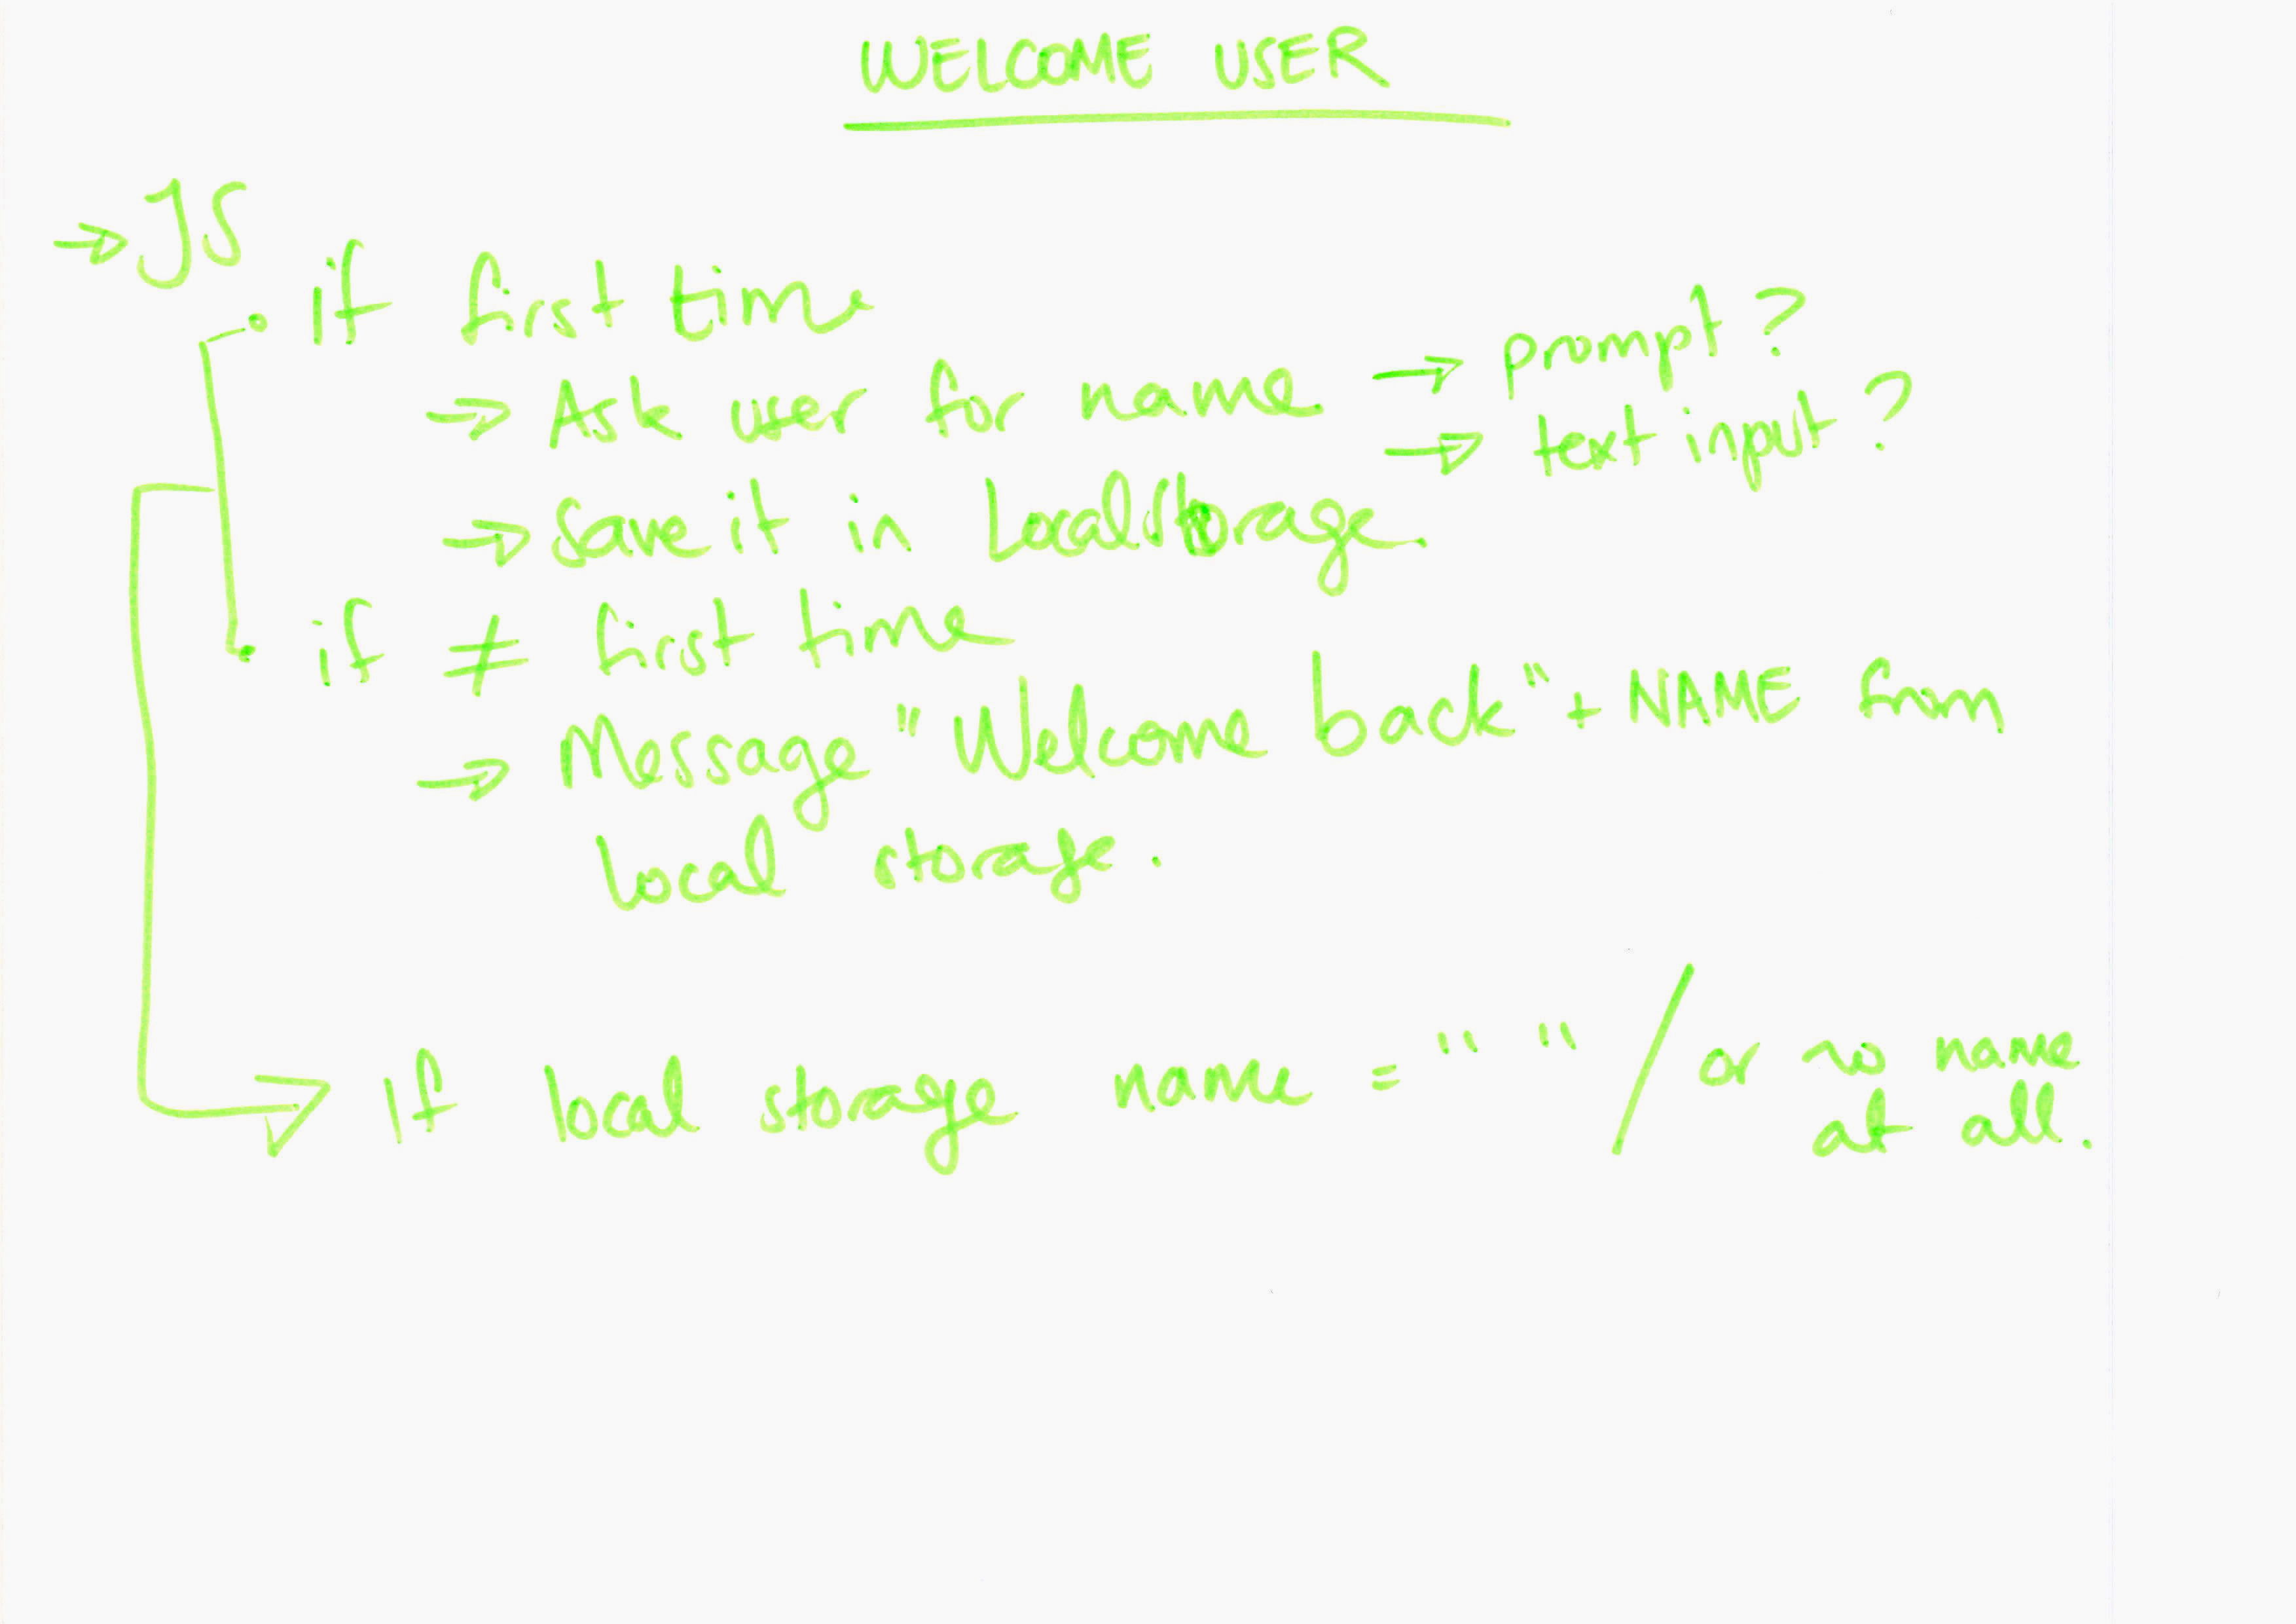 WELCOME USER
→ JS
• if first time
→ Ask user for name → prompt?
→ text input?
→ Save it in LocalStorage
• if ≠ first time
→ Message "Welcome back" + NAME from
local storage.
→ If local storage name = " " / or no name
at all.